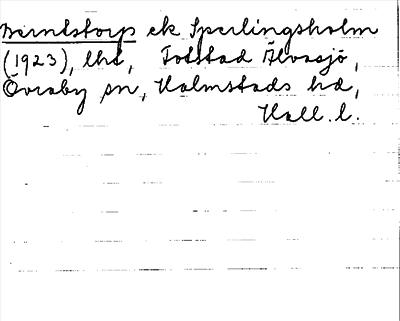 Berntstorp ek Sperlingsholm
(1923), lht, Totstad Älvasjö,
Övraby sn, Halmstads hd,
Hall. l.